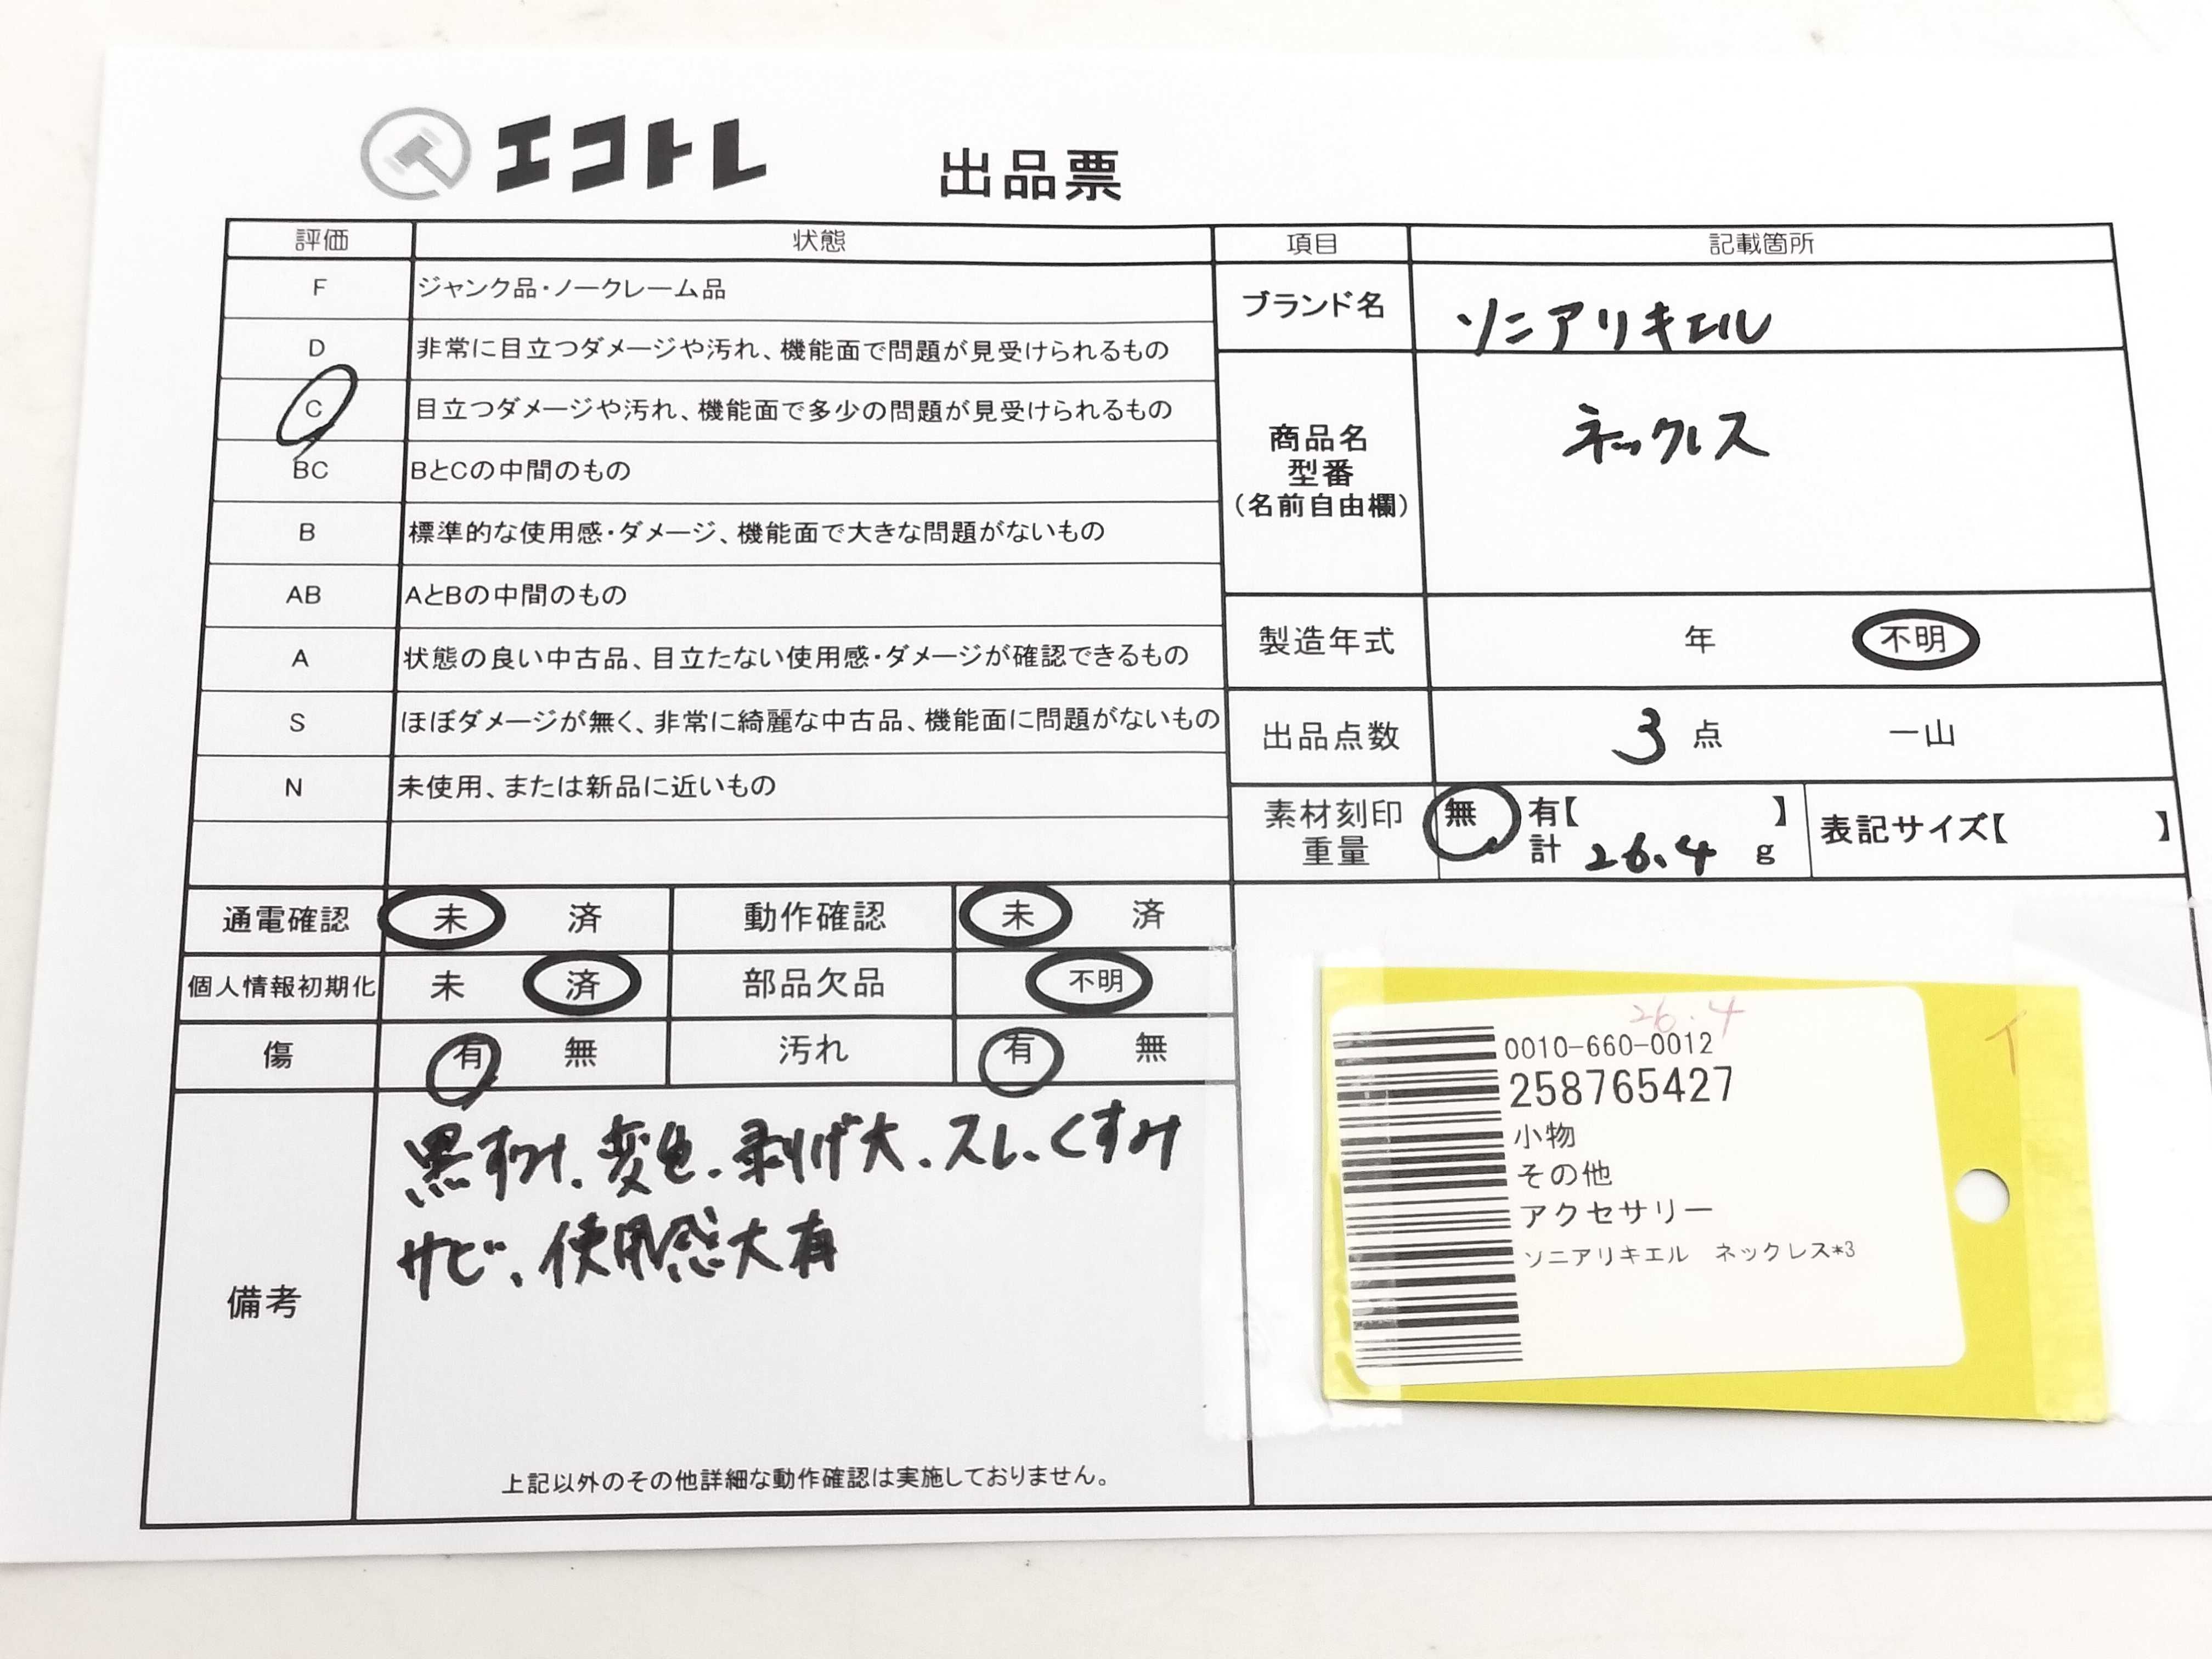 エコトレ
出品票
評価 状態
F ジャンク品・ノークレーム品
D 非常に目立つダメージや汚れ、機能面で問題が見受けられるもの
C 目立つダメージや汚れ、機能面で多少の問題が見受けられるもの
BC BとCの中間のもの
B 標準的な使用感・ダメージ、機能面で大きな問題がないもの
AB AとBの中間のもの
A 状態の良い中古品、目立たない使用感・ダメージが確認できるもの
S ほぼダメージが無く、非常に綺麗な中古品、機能面に問題がないもの
N 未使用、または新品に近いもの
項目 記載箇所
ブランド名 ソニアリキエル
商品名
型番
(名前自由欄)
ネックレス
製造年式 年 不明
出品点数 3 点 一山
素材刻印 無 有【 】
重量 計 26.4 g
表記サイズ【 】
通電確認 未 済 動作確認 未 済
個人情報初期化 未 済 部品欠品 不明
傷 有 無 汚れ 有 無
備考
黒ずみ、変色、剥げ大、スレ、くすみ
サビ、使用感大有
上記以外のその他詳細な動作確認は実施しておりません。
26.4
イ
0010-660-0012
258765427
小物
その他
アクセサリー
ソニアリキエル ネックレス*3